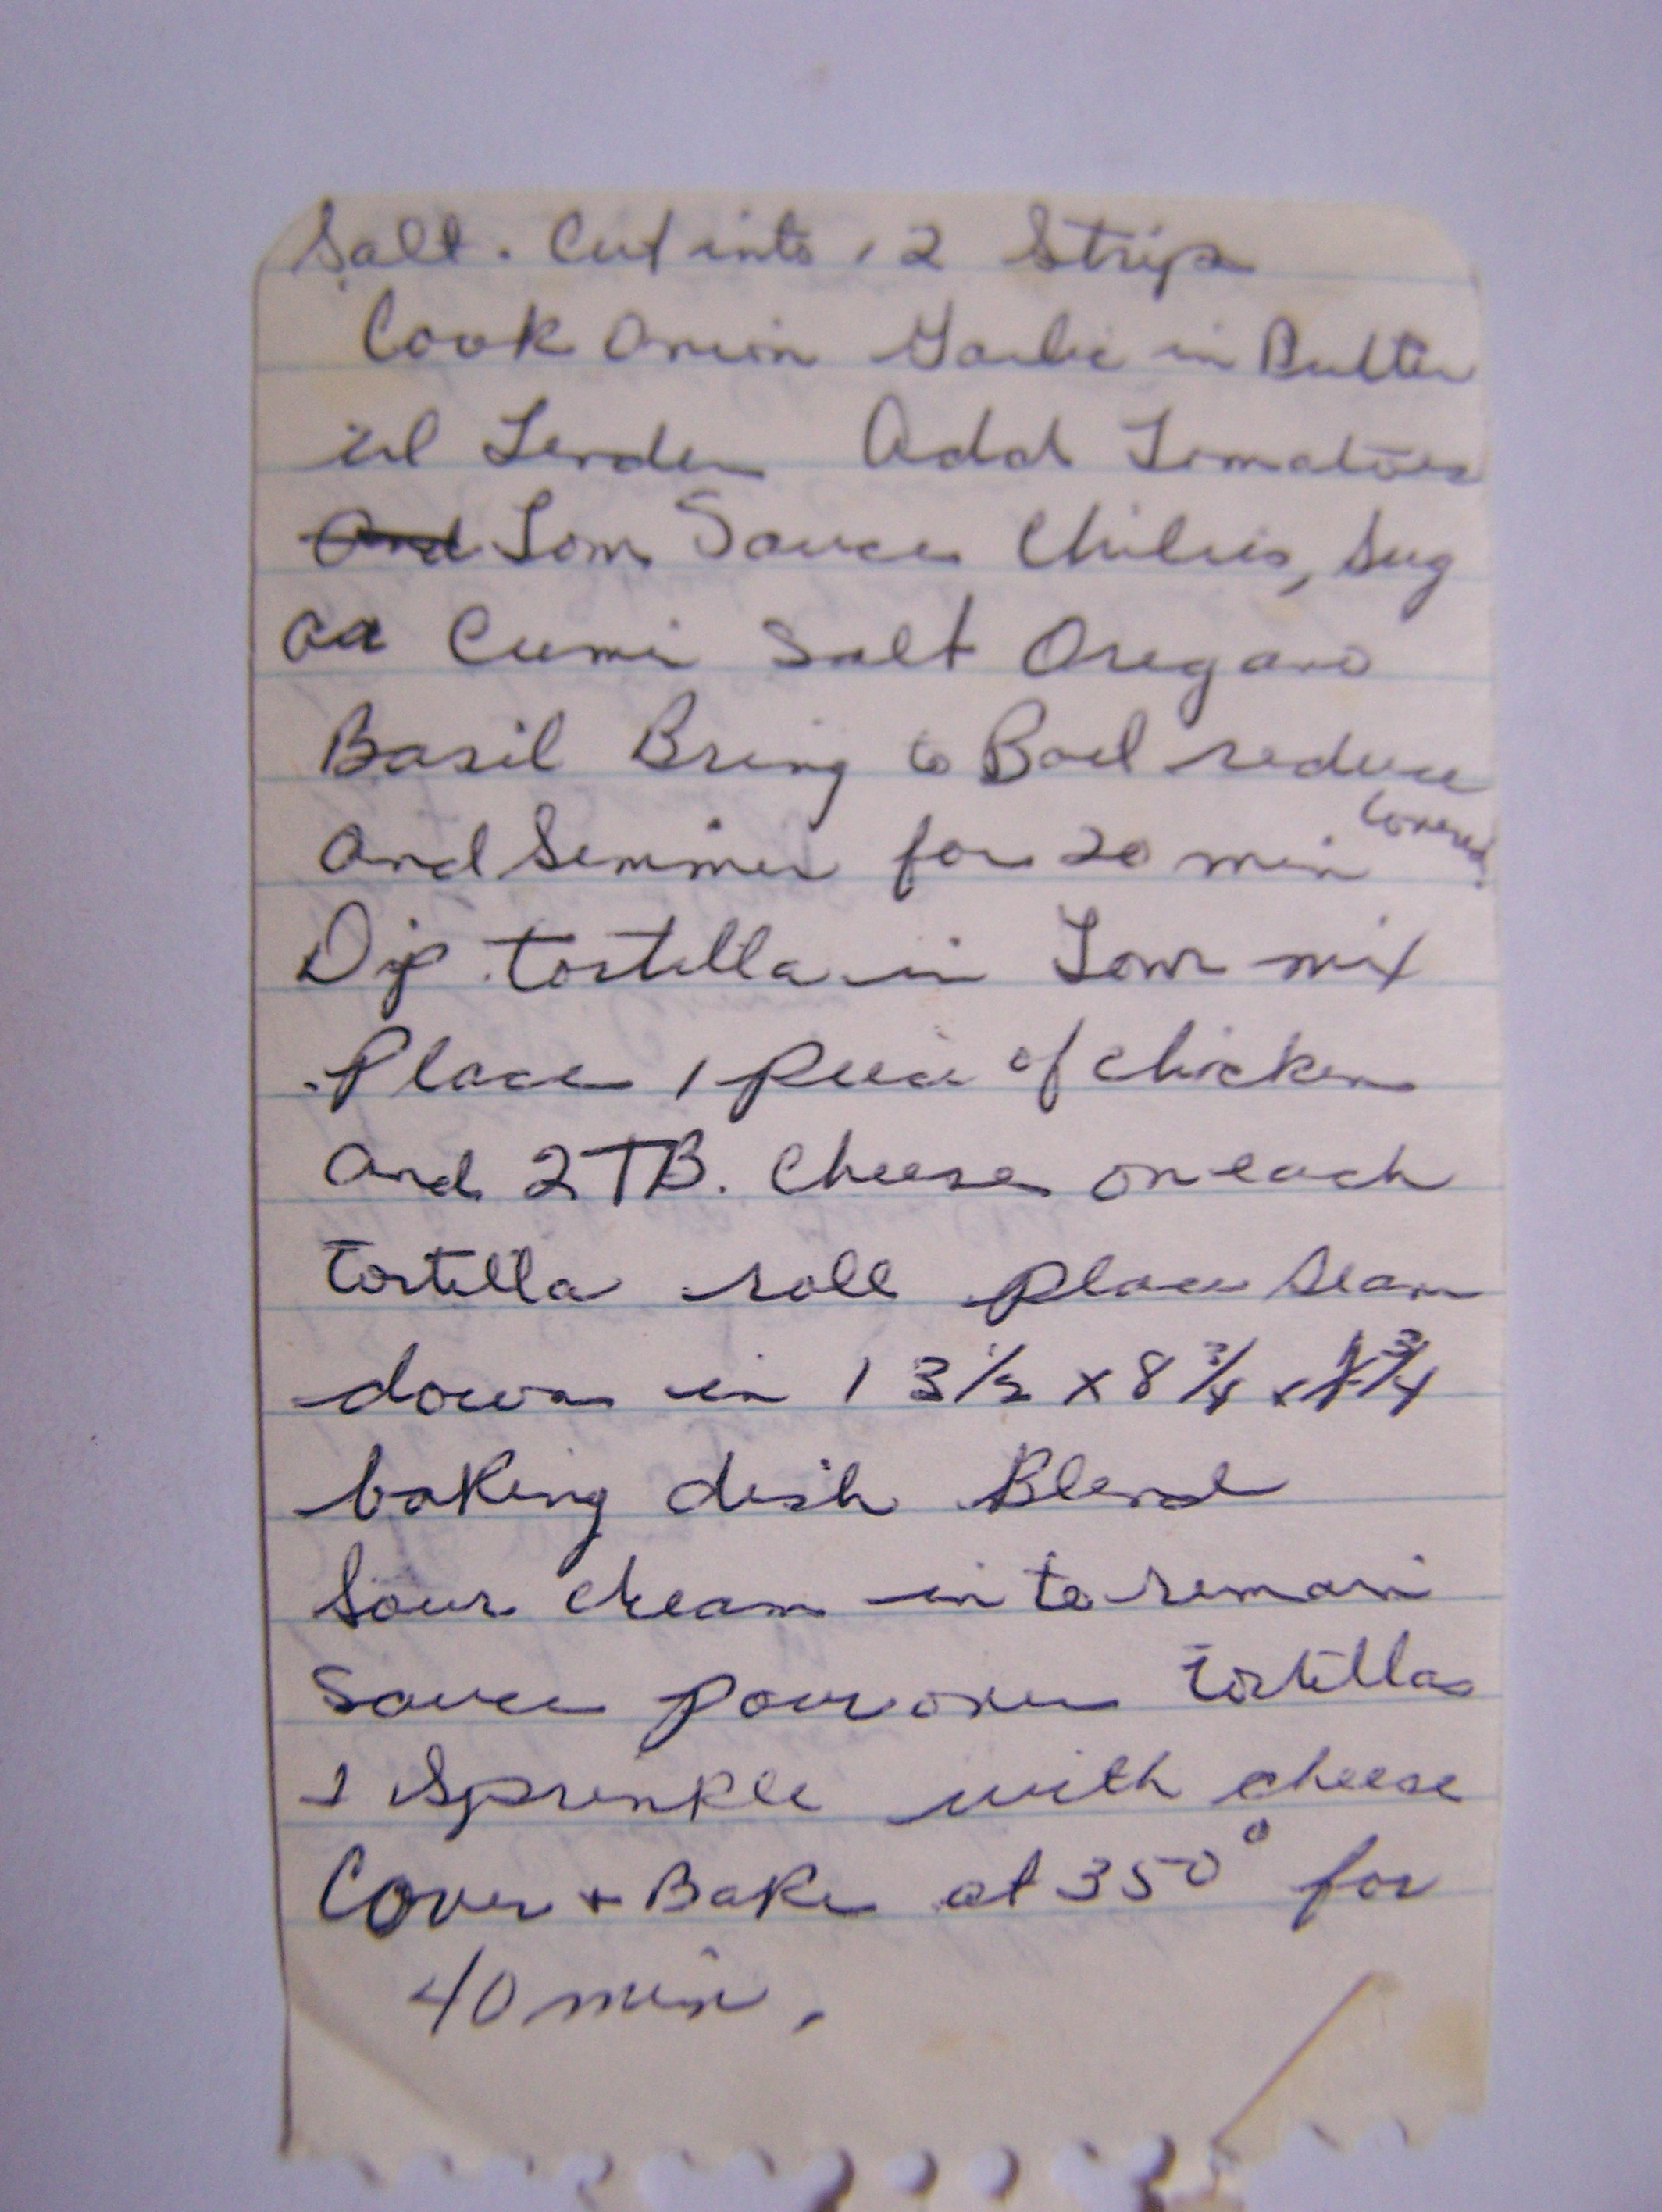 Salt. Cut into 12 Strips
Cook Onion Garlic in Butter
til Tender Add Tomatoes
And Tom Sauce Chilies, Sug
Cumi Salt Oregano
Basil Bring to Boil reduce
And Simmer for 20 min covered
Dip tortilla in Tom mix
Place 1 Piece of chicken
And 2 TB. Cheese on each
Tortilla roll place seam
down in 13 1/2 x 8 3/4 x 1 3/4
baking dish Blend
Sour cream in to remain
Sauce pour over tortillas
& Sprinkle with cheese
Cover + Bake at 350° for
40 min.